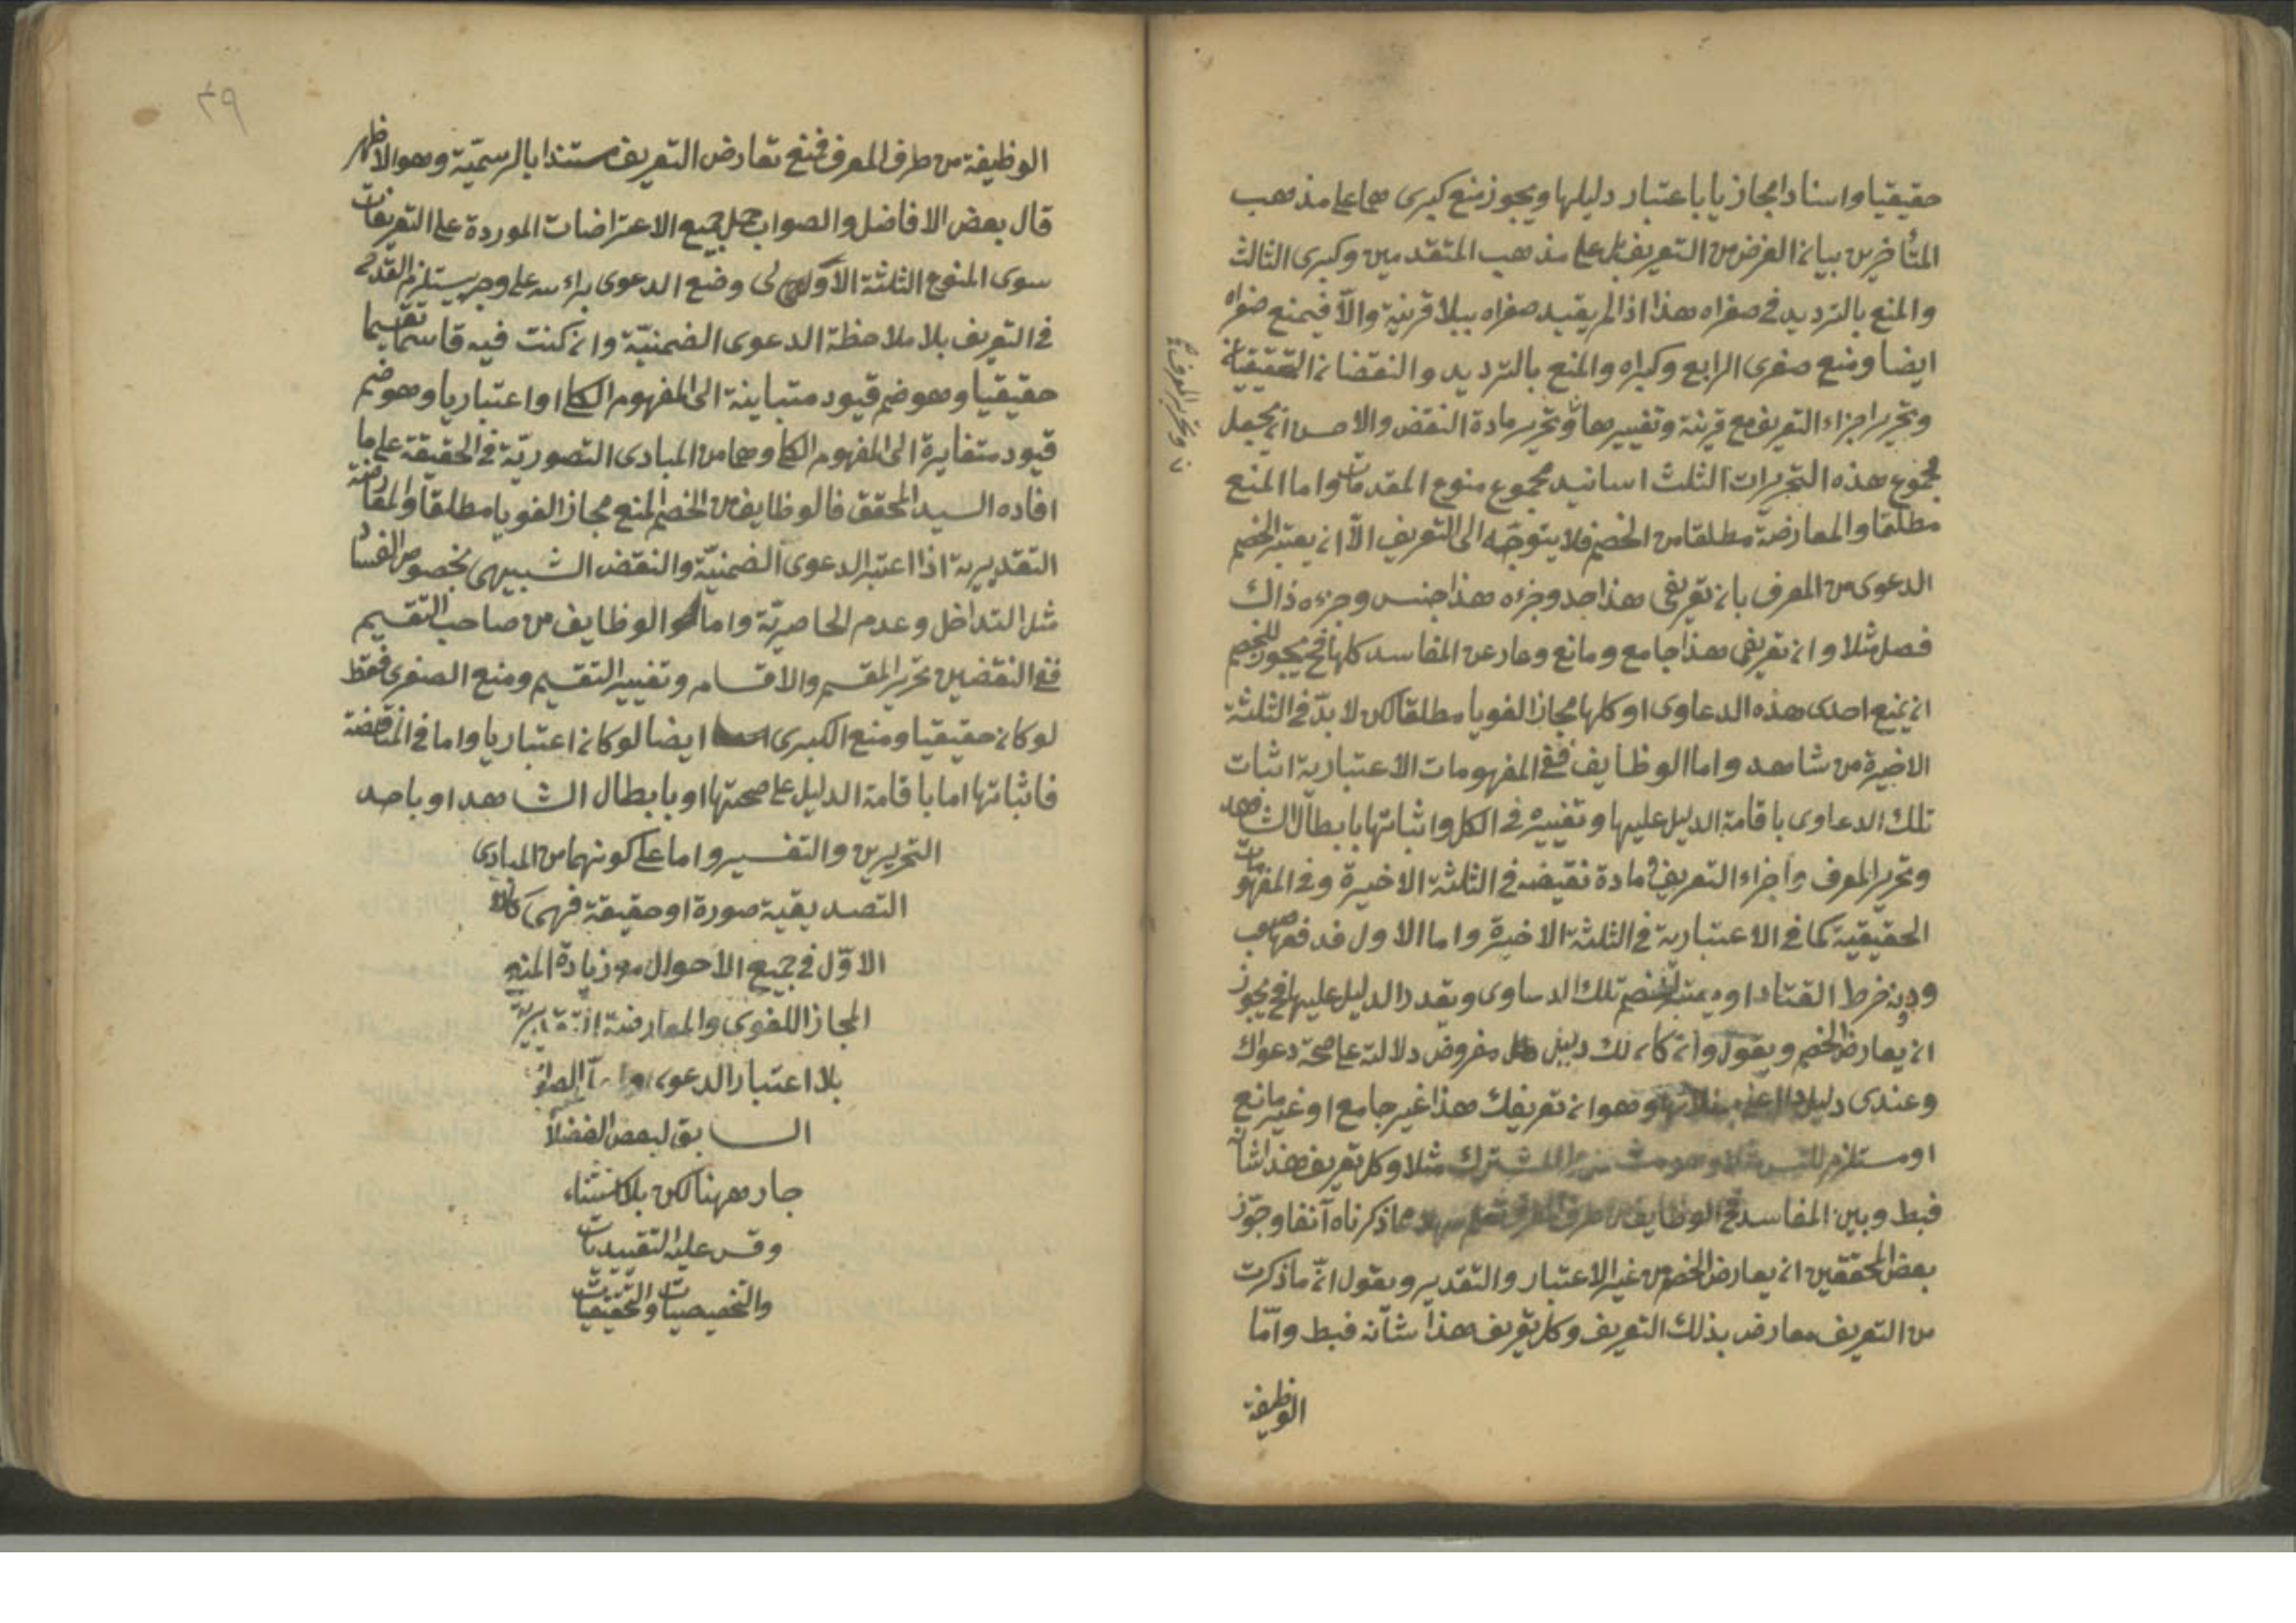 حقيقيا واسنادا مجازيا باعتبار دليلها ويجوز منع كبرى هما على مذهب
المتأخرين بيان الغرض من التعريف بل على مذهب المتقدمين وكبرى الثالث
والمنع بالترديد في صغراه هذا اذا لم يقيد صغراه ببلا قرينة والا فيمنع صغراه
ايضا ومنع صغرى الرابع وكبراه والمنع بالترديد والنقضان التحقيقيان
وتحرير اجزاء التعريف مع قرينة وتغييرها وتحرير مادة النقض والاحسن ان يجعل
مجموع هذه التحريرات الثلث اسانيد مجموع منوع المقدمات واما المنع
مطلقا والمعارضة مطلقا من الخصم فلا يتوجه الى التعريف الا ان يعتبر الخصم
الدعوى من المعرف بان تعريفي هذا حد وجزءه هذا جنس وجزءه ذاك
فصل مثلا وان تعريفي هذا جامع ومانع وعار عن المفاسد كلها فح يجوز للخصم
ان يمنع احدى هذه الدعاوى او كلها مجازا لغويا مطلقا لكن لا بد في الثلثة
الاخيرة من شاهد واما الوظايف ففي المفهومات الاعتبارية اثبات
تلك الدعاوى باقامة الدليل عليها وتغييره في الكل واثباتها بابطال الشاهد
وتحرير المعرف واجزاء التعريف ومادة نقيضه في الثلثة الاخيرة وفي المفهومات
الحقيقية كما في الاعتبارية في الثلثة الاخيرة واما الاول فدفعها صعب
ودونه خرط القتاد او يعتبر الخصم تلك الدعاوى ويقدر الدليل عليها فح يجوز
ان يعارض الخصم ويقول وان كان لك دليل مفروض دلالته على صحة دعواك
وعندي دليل وهو ان تعريفك هذا غير جامع او غير مانع
او مستلزم المشترك مثلا وكل تعريف هذا شأنه
فبط وبين المفاسد فح الوظايف مما ذكرناه آنفا وجوّز
بعض المحققين ان يعارض الخصم من غير الاعتبار والتقدير ويقول ان ما ذكرت
من التعريف معارض بذلك التعريف وكل تعريف هذا شأنه فبط وامّا
الوظيفة
وتحرير المعرف
٣٩
الوظيفة من طرف المعرف فمنع تعارض التعريف مستندا بالرسميّة وهو الاظهر
قال بعض الافاضل والصواب حمل جميع الاعتراضات الموردة على التعريفات
سوى المنوع الثلثة الاول على وضع الدعوى براءسه على وجه يستلزم القدح
في التعريف بلا ملاحظة الدعوى الضمنيّة وان كنت فيه قاسما تقسيما
حقيقيا وهو ضم قيود متباينة الى المفهوم الكلي او اعتباريا وهو ضم
قيود متغايرة الى المفهوم الكلي وهما من المبادى التصوريّة في الحقيقة على ما
افاده السيد المحقق فالوظايف من الخصم المنع مجازا لغويا مطلقا والمعارضة
التقديرية اذا اعتبر الدعوى الضمنيّة والنقض الشبيهى بخصوص الفساد
مثل التداخل وعدم الحاصريّة واما الوظايف من صاحب التقسيم
ففي النقضين تحرير المقسم والاقسام وتغيير التقسيم ومنع الصغرى فقط
لو كان حقيقيا ومنع الكبرى ايضا لو كان اعتباريا واما في المناقضة
فاثباتها اما باقامة الدليل على صحتها او بابطال الشاهد او باحد
التحريرين والتفسير واما على كونهما من المبادى
التصديقية صورة او حقيقة فهما كان
الاوّل في جميع الاحوال مع زيادة المنع
المجاز اللغوي والمعارضة التقديرية
بلا اعتبار الدعوى
السابق لبعض الفضلا
جار ههنا لكن بلا استثناء
وقس عليه التقييديات
والتخصيصيات